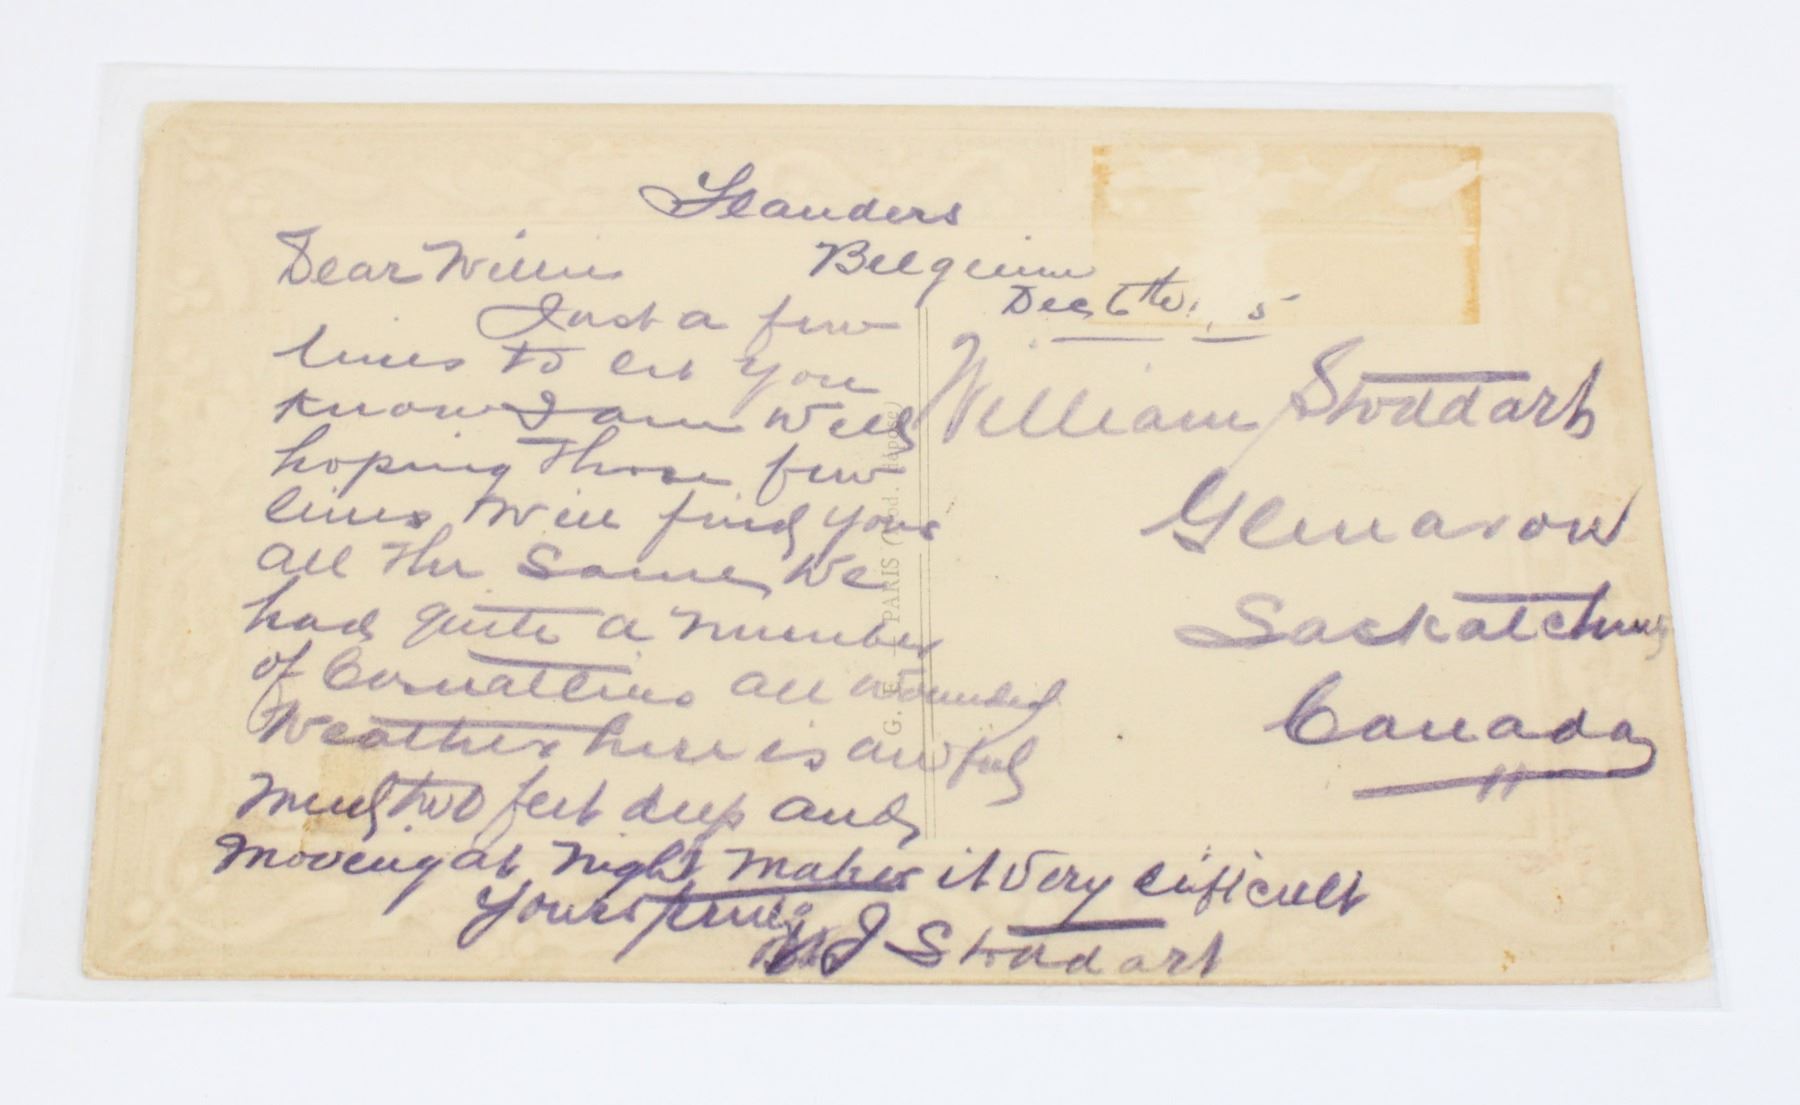 Flanders
Belgium
Dec 6th 5
Dear Willie
Just a few
lines to let you
know I am well
hoping those few
lines will find you
all the same, we
had quite a number
of Casualties all wounded
Weather here is awful
Mud two feet deep and
moving at night makes it very dificult
Yours truly
W J Stoddart
William Stoddart
Glenavon
Saskatchewan
Canada
G. E. — PARIS (Mod. déposé)